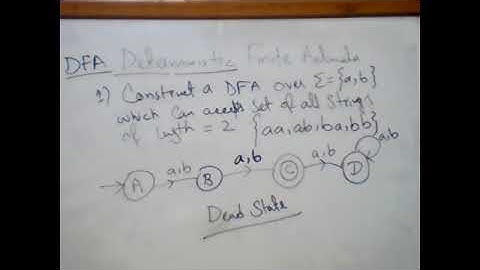 DFA Deterministic Finite Automata
1) Construct a DFA over Σ={a,b}
which can accept set of all strings
of length = 2 {aa,ab,ba,bb}
a,b a,b a,b a,b
A B C D
Dead State